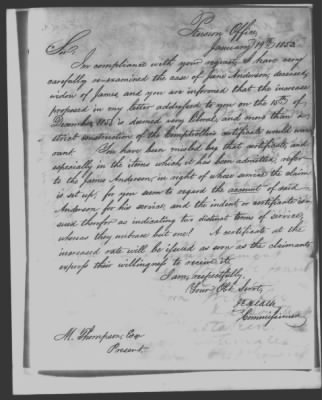 Pension Office,
January 19th 1852
Sir:
In compliance with your request I have very
carefully re-examined the case of Jane Anderson, deceased,
widow of James, and you are informed that the increase
proposed in my letter addressed to you on the 15th of
December 1851 is deemed very liberal, and more than a
strict construction of the Comptroller's certificate would war-
rant. You have been misled by that certificate, and
especially in the items which it has been admitted, refer
to the James Anderson, in right of whose service the claim
is set up; for you seem to regard the account of said
Anderson for his service, and the indent or certificate is-
sued therefor as indicating two distinct terms of service,
whereas they embrace but one! A certificate at the
increased rate will be issued as soon as the claimants
express their willingness to receive it.
I am, respectfully,
Your Obt. Servt,
Heath
Commissioner
M. Thompson, Esqr
Present.